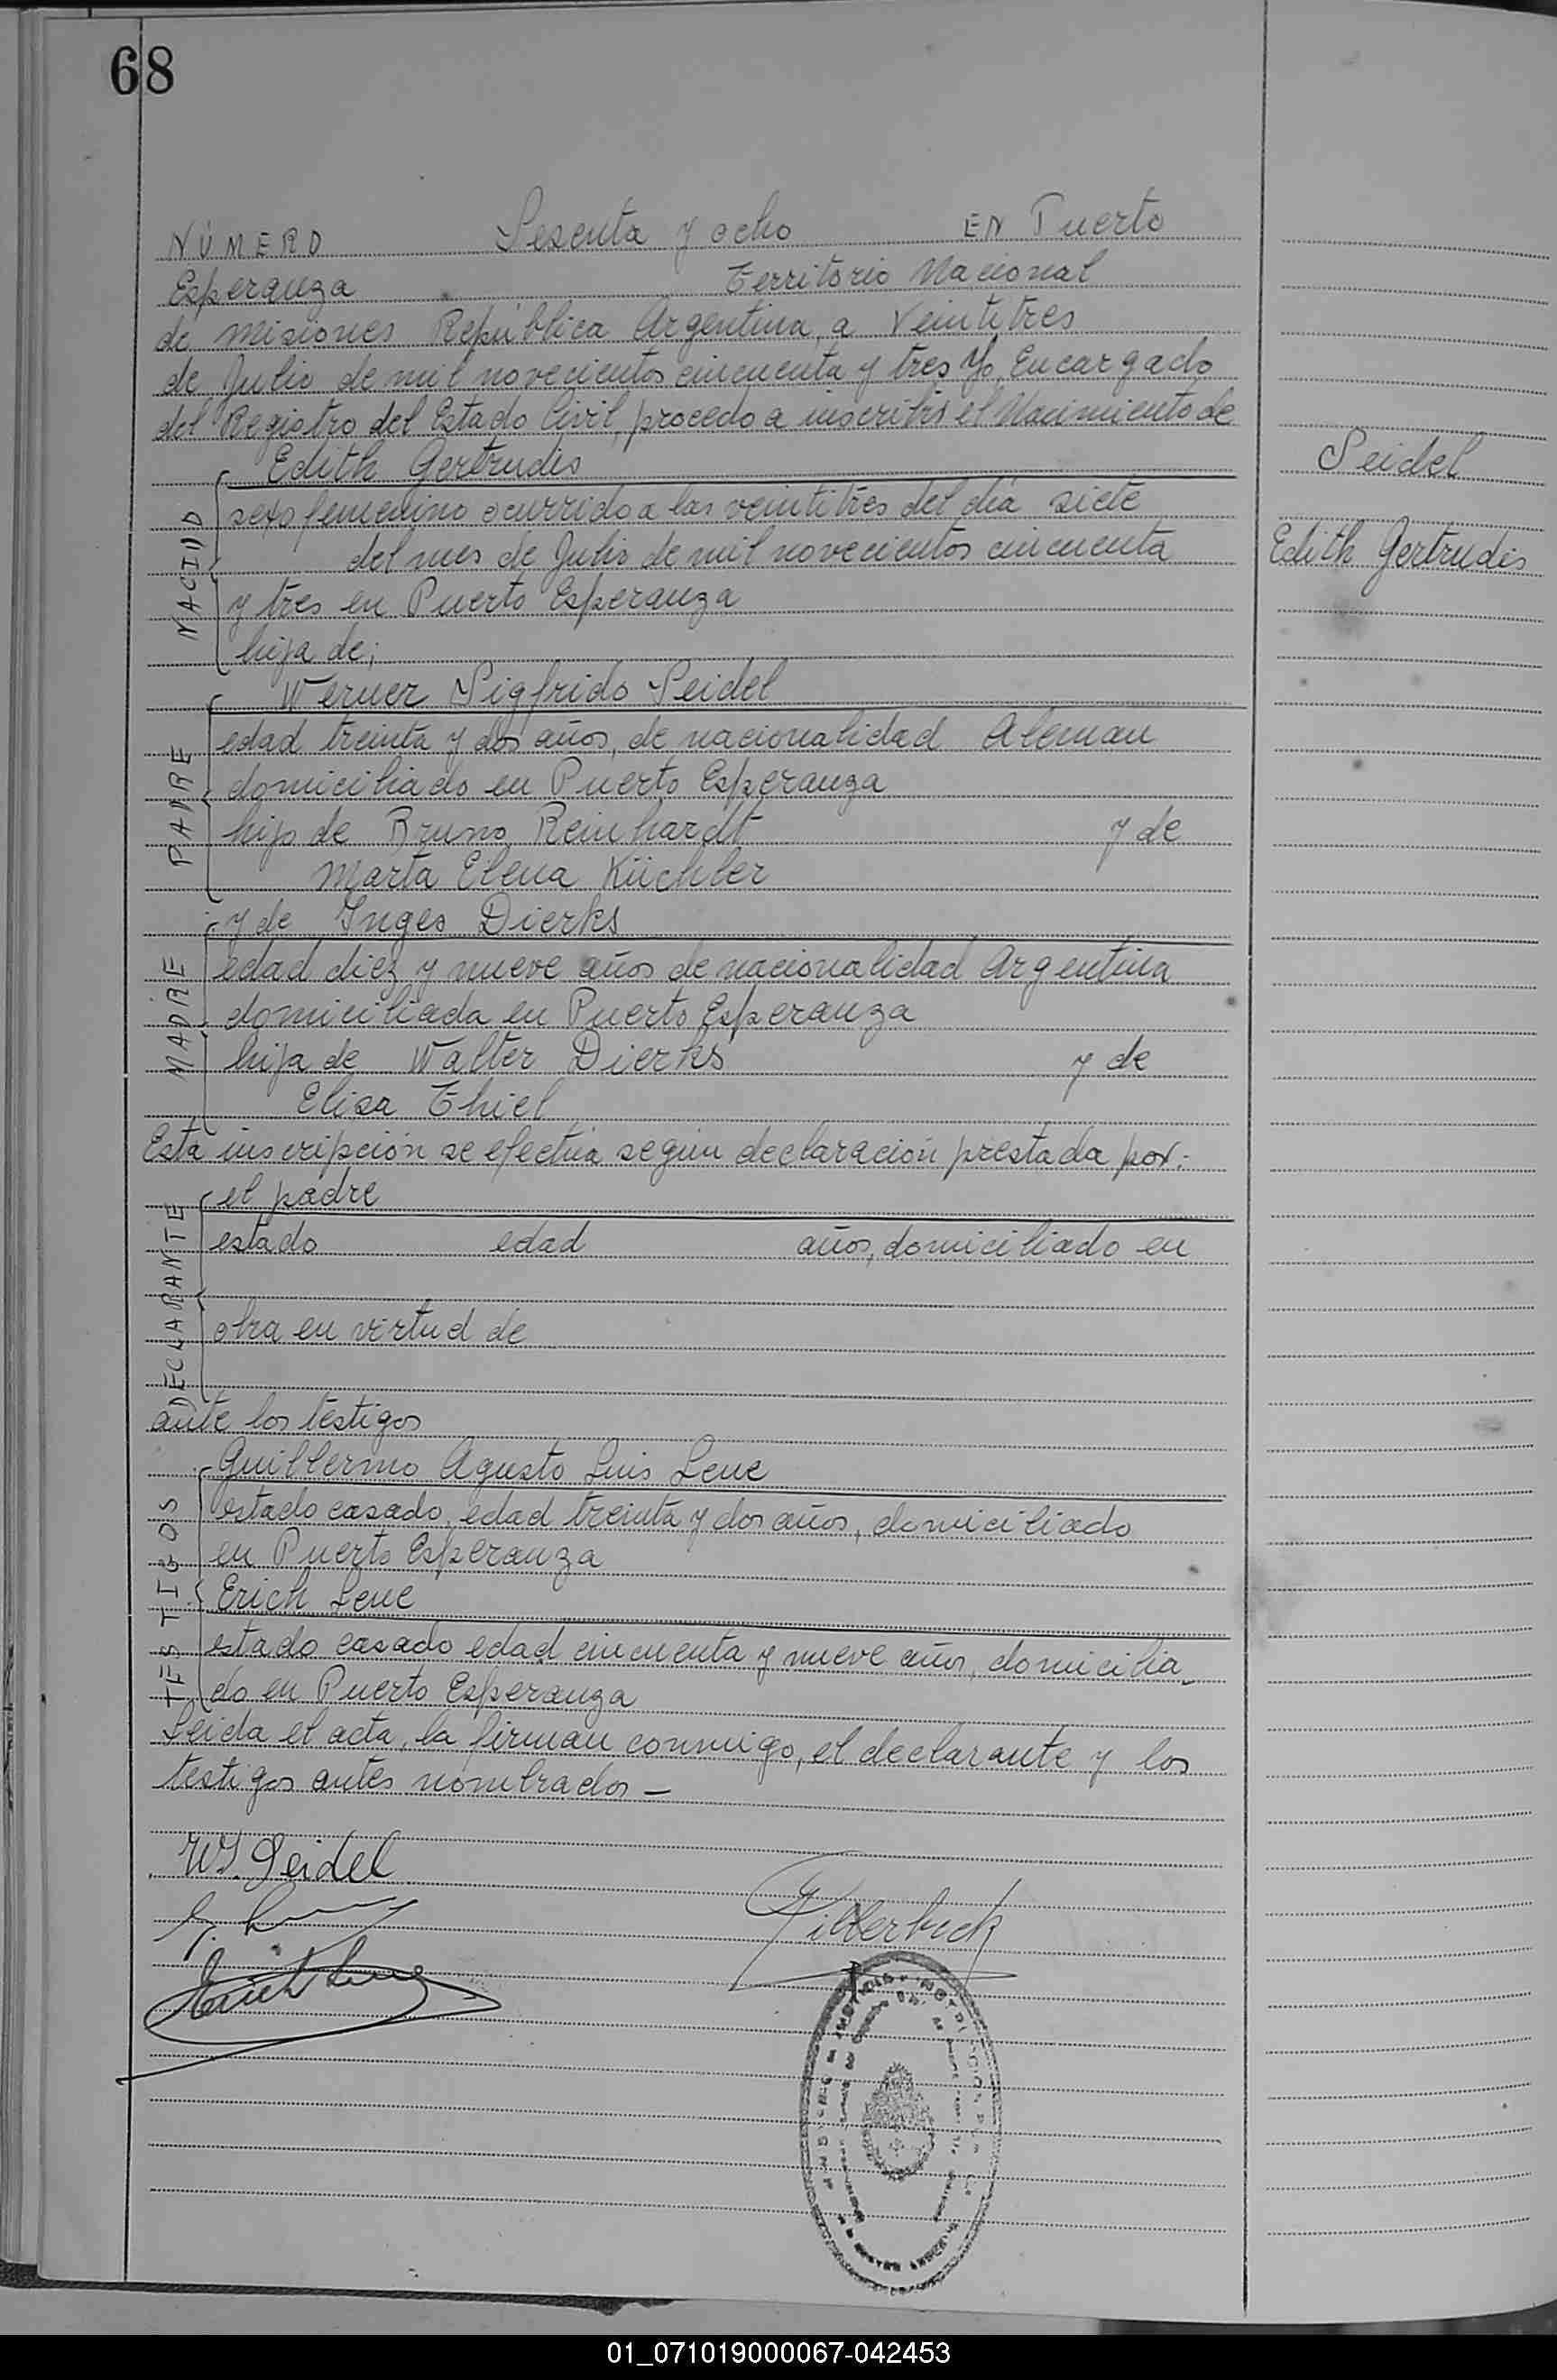 68
NÚMERO Sesenta y ocho EN Puerto
Esperanza Territorio Nacional
de Misiones República Argentina, a Veintitres
de Julio de mil novecientos cincuenta y tres Yo, Encargado
del Registro del Estado Civil, procedo a inscribir el Nacimiento de
Edith Gertrudis
Seidel
Edith Gertrudis
NACIDO
sexo femenino ocurrido a las veintitres del día siete
del mes de Julio de mil novecientos cincuenta
y tres en Puerto Esperanza
hija de;
PADRE
Werner Sigfrido Seidel
edad treinta y dos años, de nacionalidad Aleman
domiciliado en Puerto Esperanza
hijo de Bruno Reinhardt y de
Marta Elena Küchler
MADRE
y de Inges Dierks
edad diez y nueve años de nacionalidad Argentina
domiciliada en Puerto Esperanza
hija de Walter Dierks y de
Elisa Thiel
Esta inscripción se efectúa según declaración prestada por:
DECLARANTE
el padre
estado edad años, domiciliado en
obra en virtud de
ante los testigos
TESTIGOS
Guillermo Agusto Luis Leue
estado casado, edad treinta y dos años, domiciliado
en Puerto Esperanza
Erich Leue
estado casado edad cincuenta y nueve años, domicilia
do en Puerto Esperanza
Leida el acta, la firman conmigo, el declarante y los
testigos antes nombrados —
WS. Seidel
01_071019000067-042453